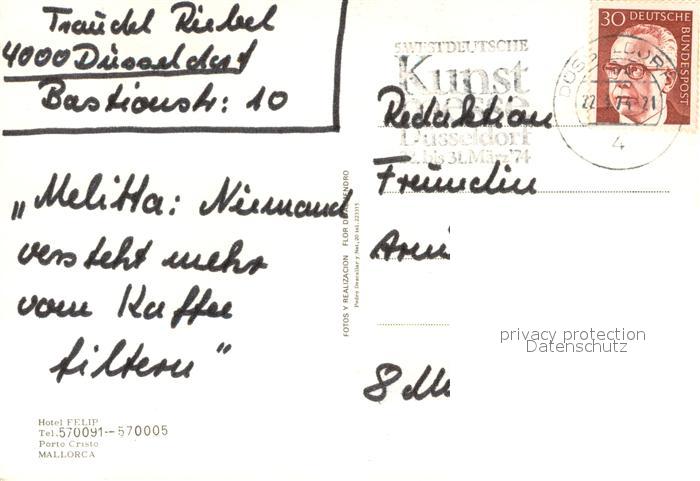 Traudel Riebel
4000 Düsseldorf
Bastionstr: 10
„Melitta: Niemand
versteht mehr
vom Kaffee
filtern"
Hotel FELIP
Tel. 570091--570005
Porto Cristo
MALLORCA
FOTOS Y REALIZACION FLOR DE ALMENDRO
WESTDEUTSCHE
Kunst
messe
Düsseldorf
bis 31. März '74
30 DEUTSCHE
BUNDESPOST
DÜSSELDORF
4
Redaktion
Freundin
privacy protection
Datenschutz
8